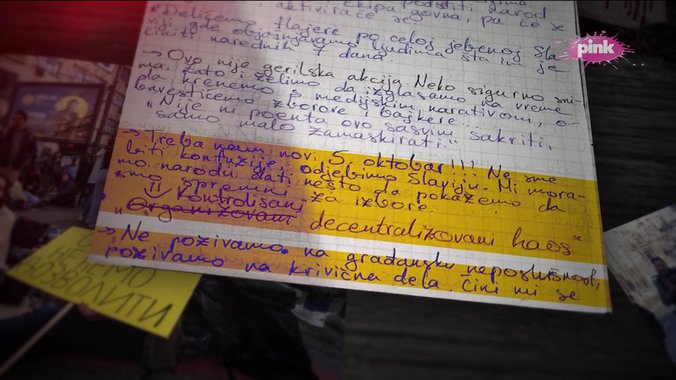 podsetiti narod
aktiviraće se ekipa govna, pa će se
"Delićemo flajere po celoj jebenoj Sla-
viji gde objašnjavamo ljudima šta će je
činiti narednih 7 dana
→ Ovo nije gerilska akcija. Neko sigurno sni-
ma. Zato i želimo da izglasamo na vreme
da krenemo s medijskim narativom, o-
bavestićemo zborove i bajkere.
"Nije ni poenta ovo sasvim sakriti,
samo malo zamaskirati."
→ Treba nam novi 5. oktobar!!! Ne sme
biti konfuzije, odjebimo Slaviju. Mi mora-
mo narodu dati nešto da pokažemo da
smo spremni za izbore.
Kontrolisani
"Organizovani decentralizovani haos"
→ Ne pozivamo na građansku neposlušnost,
pozivamo na krivična dela. Čini mi se
pink